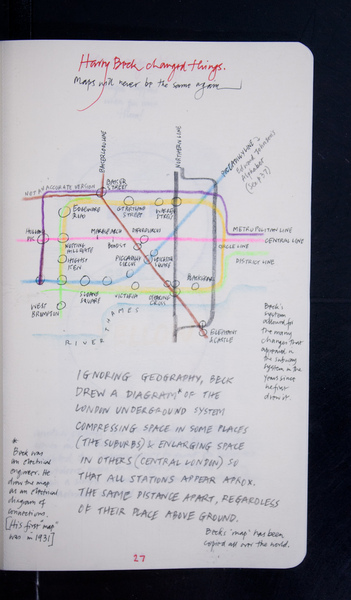 Harry Beck changed things.
Maps will never be the same again
BAKERLOO LINE
NORTHERN LINE
PICCADILLY LINE
NOT AN ACCURATE VERSION
BAKER
STREET
EDGEWARE
ROAD
GT PORTLAND
STREET
WARREN
STREET
METROPOLITAN LINE
CENTRAL LINE
CIRCLE LINE
DISTRICT LINE
NOTTING
HILL GATE
MARBLE ARCH
BOND ST
HIGH ST
KEN
PICCADILLY
CIRCUS
SLOANE
SQUARE
VICTORIA
CHARING
CROSS
WEST
BROMPTON
ELEPHANT
& CASTLE
RIVER THAMES
Beck's
system
allowed for
the many
changes that
appeared in
the subway
system in the
years since
he first
drew it.
IGNORING GEOGRAPHY, BECK
DREW A DIAGRAM* OF THE
LONDON UNDERGROUND SYSTEM
COMPRESSING SPACE IN SOME PLACES
(THE SUBURBS) & ENLARGING SPACE
IN OTHERS (CENTRAL LONDON) SO
THAT ALL STATIONS APPEAR APROX.
THE SAME DISTANCE APART, REGARDLESS
OF THEIR PLACE ABOVE GROUND.
*
Beck was
an electrical
engineer. He
drew the map
as an electrical
diagram of
connections.
[His first "map"
was in 1931]
Becks 'map' has been
copied all over the world.
27